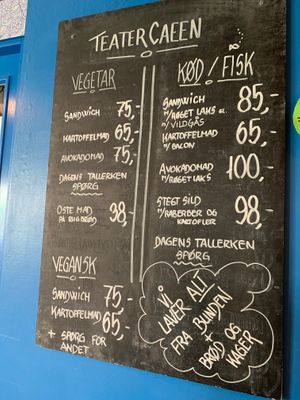 TEATERCAFEEN
VEGETAR
SANDWICH 75,-
KARTOFFELMAD 65,-
AVOKADOMAD 75,-
DAGENS TALLERKEN
SPØRG
OSTE MAD
PÅ RUGBRØD 98,-
VEGANSK
SANDWICH 75,-
KARTOFFELMAD 65,-
+ SPØRG FOR
ANDET
KØD / FISK
SANDWICH 85,-
M/RØGET LAKS EL.
M/VILDGÅS
KARTOFFELMAD 65,-
M/BACON
AVOKADOMAD 100,-
M/RØGET LAKS
STEGT SILD 98,-
M/RABERBER OG
KARTOFLER
DAGENS TALLERKEN
SPØRG
VI
LAVER ALT
FRA BUNDEN
+
BRØD OG
KAGER